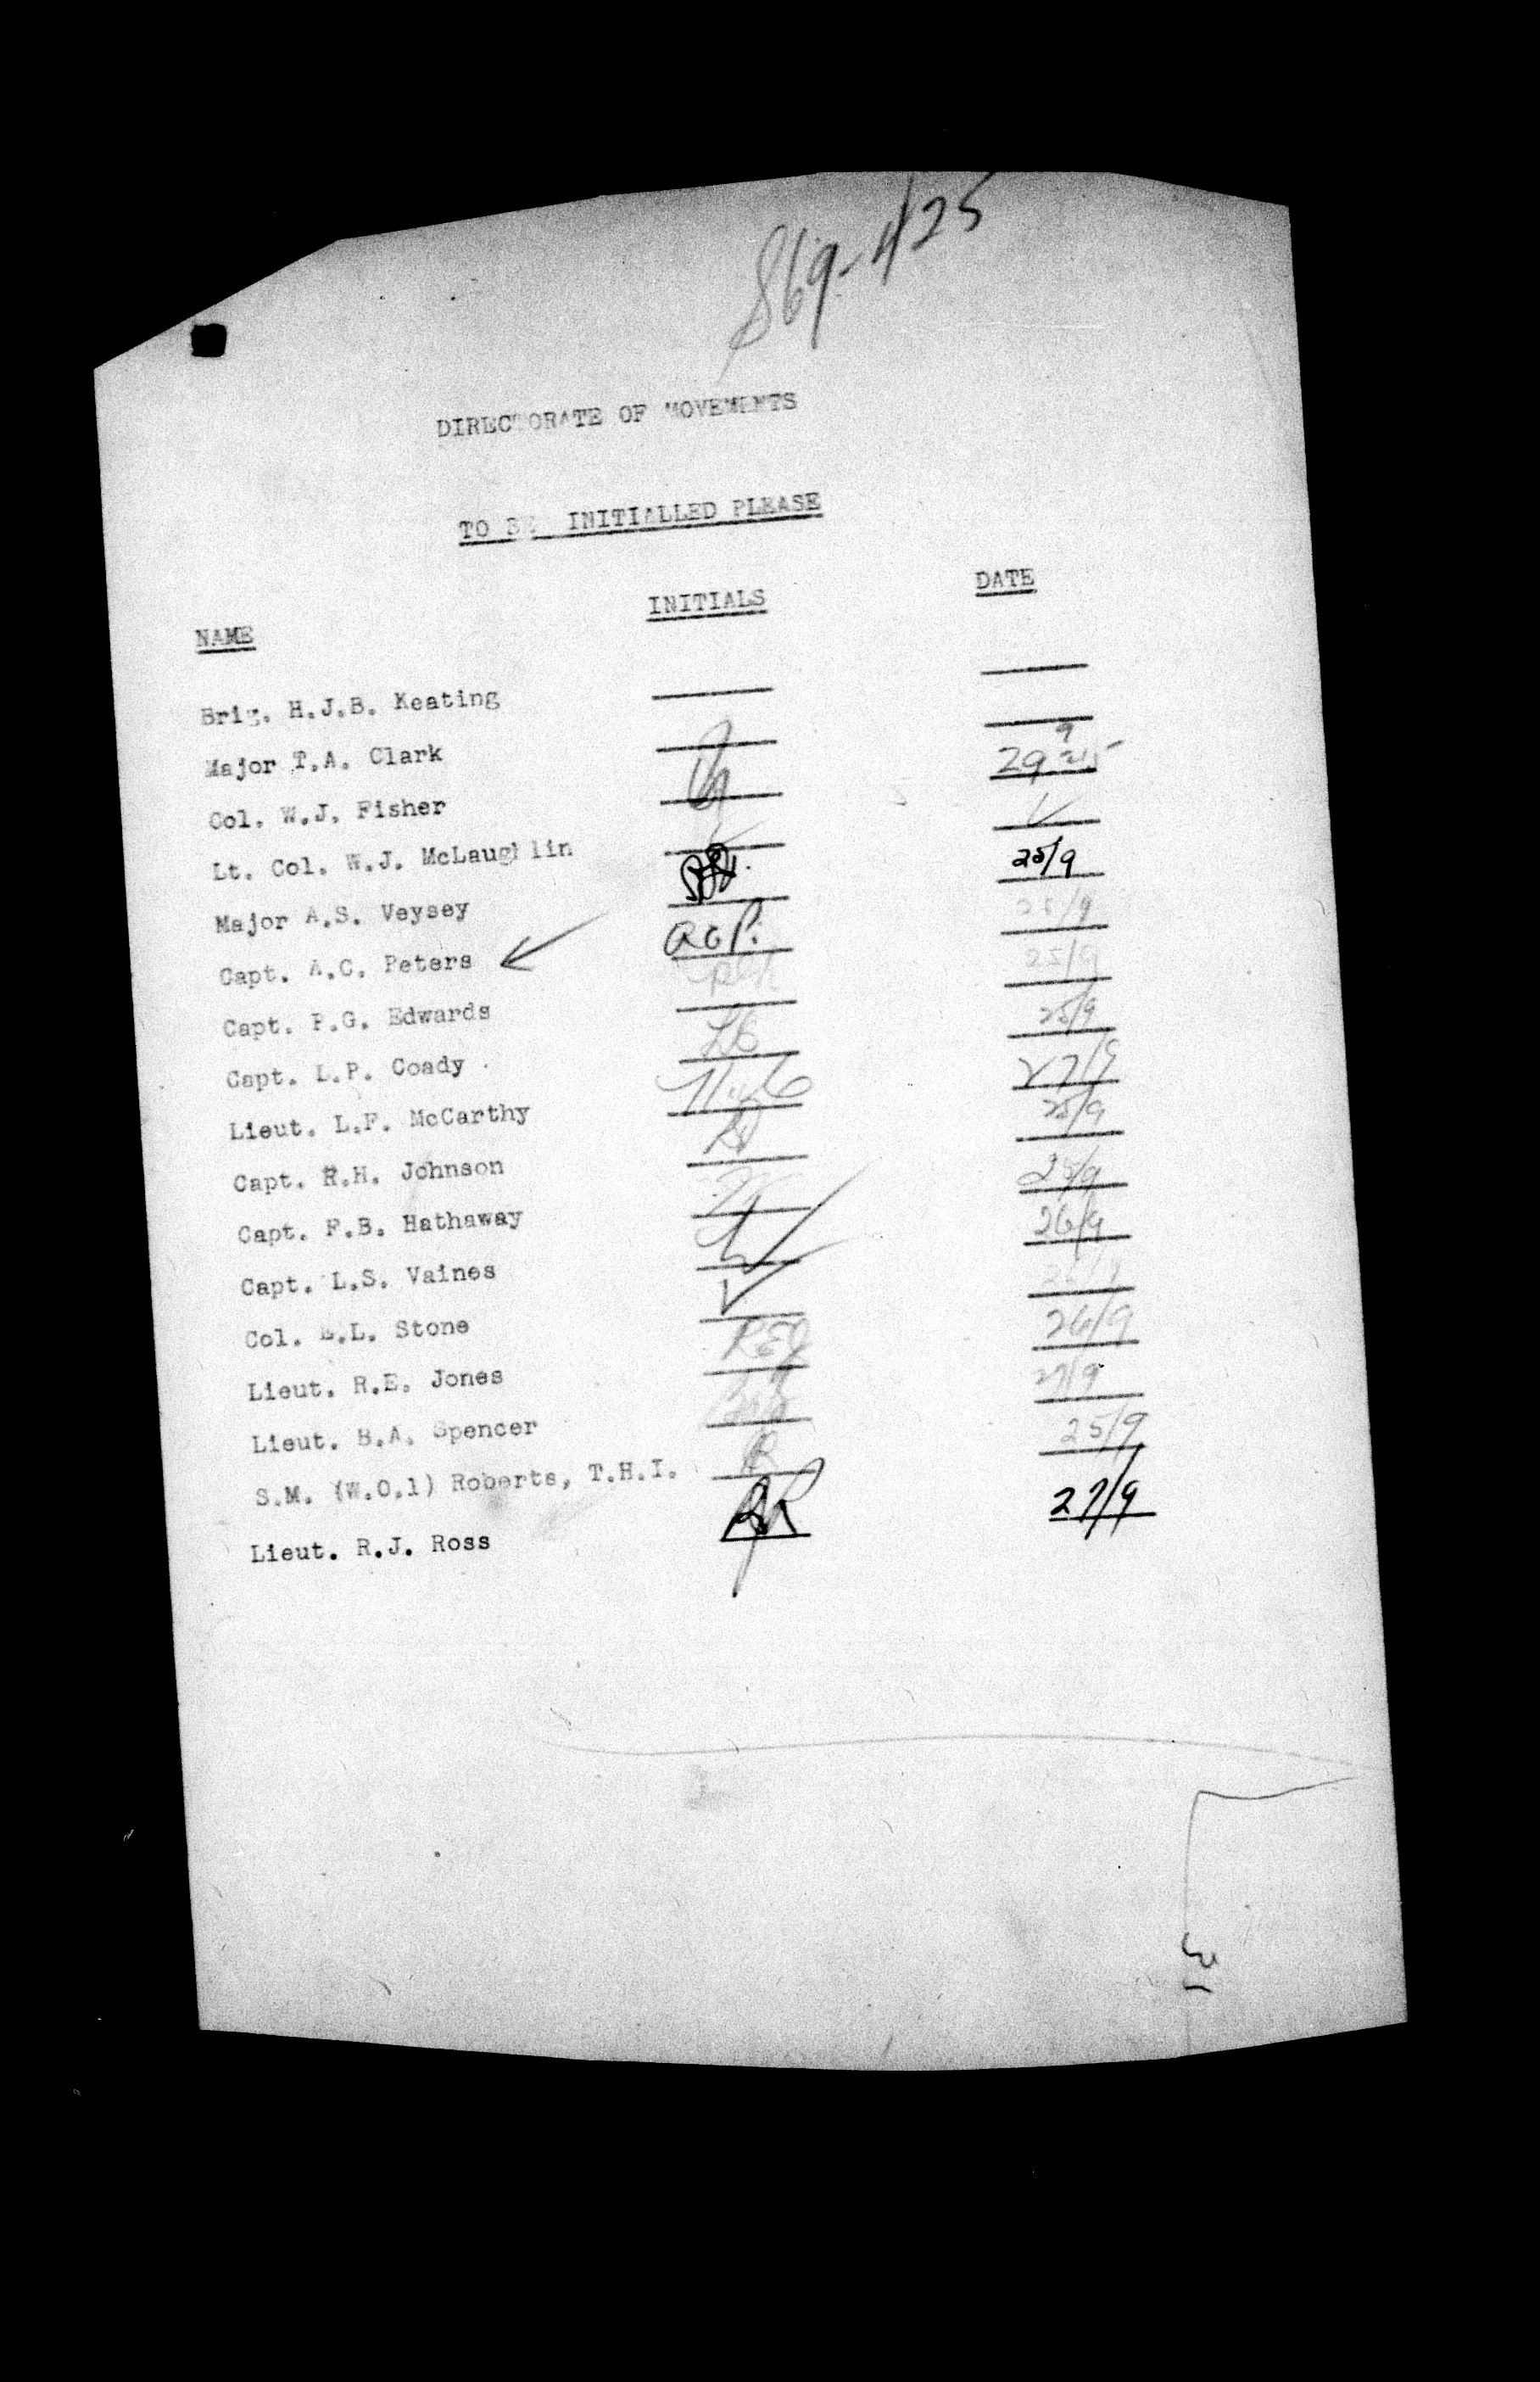 869-4/25
DIRECTORATE OF MOVEMENTS
TO BE INITIALLED PLEASE
NAME INITIALS DATE
Brig. H.J.B. Keating
Major T.A. Clark
Col. W.J. Fisher 29 9
Lt. Col. W.J. McLaughlin
Major A.S. Veysey 25/9
Capt. A.C. Peters ACP. 25/9
Capt. P.G. Edwards 25/9
Capt. L.P. Coady 25/9
Lieut. L.F. McCarthy 27/9
Capt. R.H. Johnson 25/9
Capt. F.B. Hathaway 25/9
Capt. L.S. Vaines 26/9
Col. L. Stone
Lieut. R.E. Jones REJ 26/9
Lieut. B.A. Spencer 27/9
S.M. (W.O.1) Roberts, T.H.I. R 25/9
Lieut. R.J. Ross 27/9